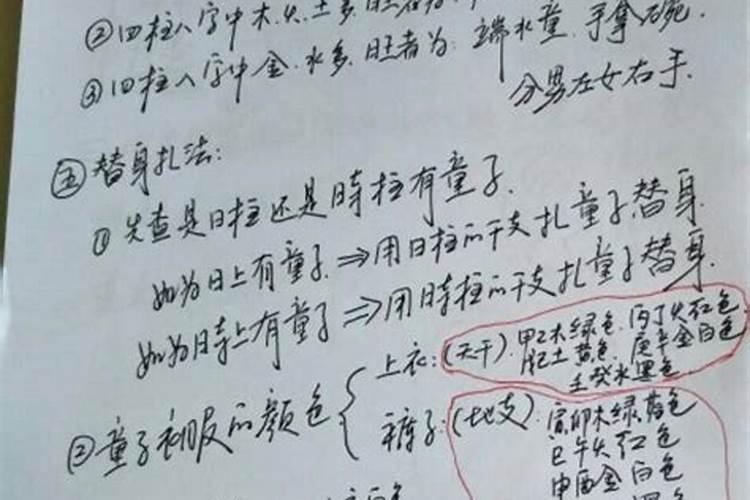 ②四柱八字中木.火.土多.旺者为
③四柱八字中金.水多.旺者为:端水童.手拿碗.
分男左女右手.
㊄替身扎法:
①先查是日柱还是时柱有童子.
如为日上有童子.⇒用日柱的干支扎童子替身
如为时上有童子⇒用时柱的干支扎童子替身.
②童子衣服的颜色
上衣:(天干).甲乙木绿色.丙丁火红色
戊己土黄色.庚辛金白色
壬癸水黑色
裤子:(地支).寅卯木绿色
巳午火红色
申酉金白色
黑色